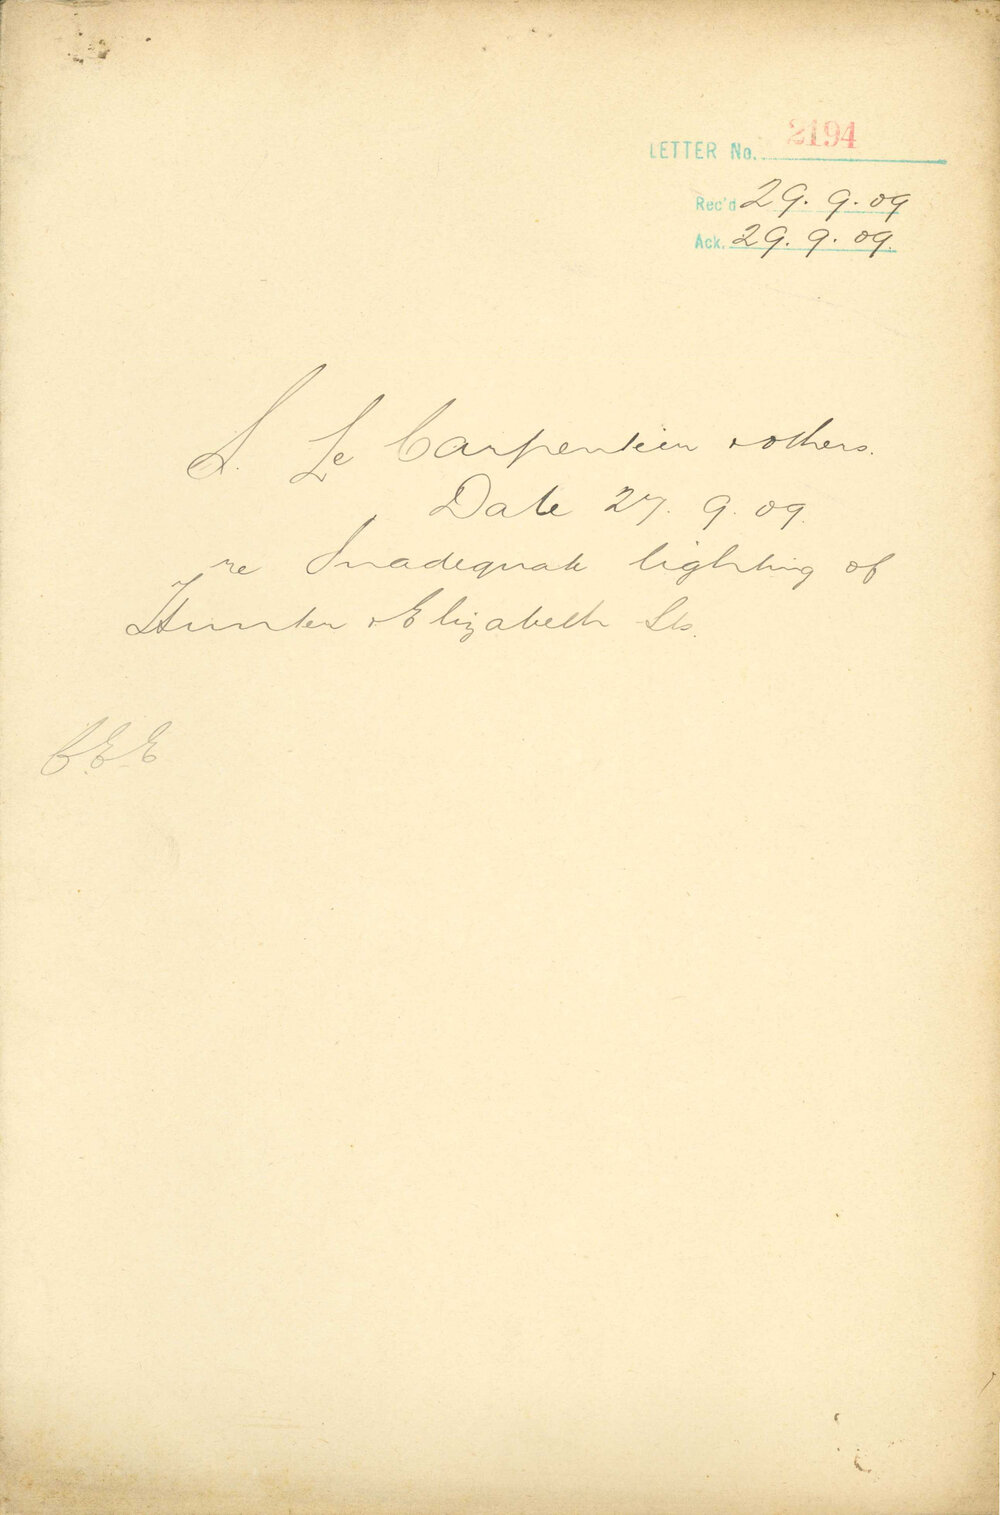 LETTER No. 2194
Rec'd 29. 9. 09
Ack. 29. 9. 09.
S. Le Carpentier & others.
Date 27. 9. 09.
re Inadequate lighting of
Hunter & Elizabeth Sts.
C.E.E